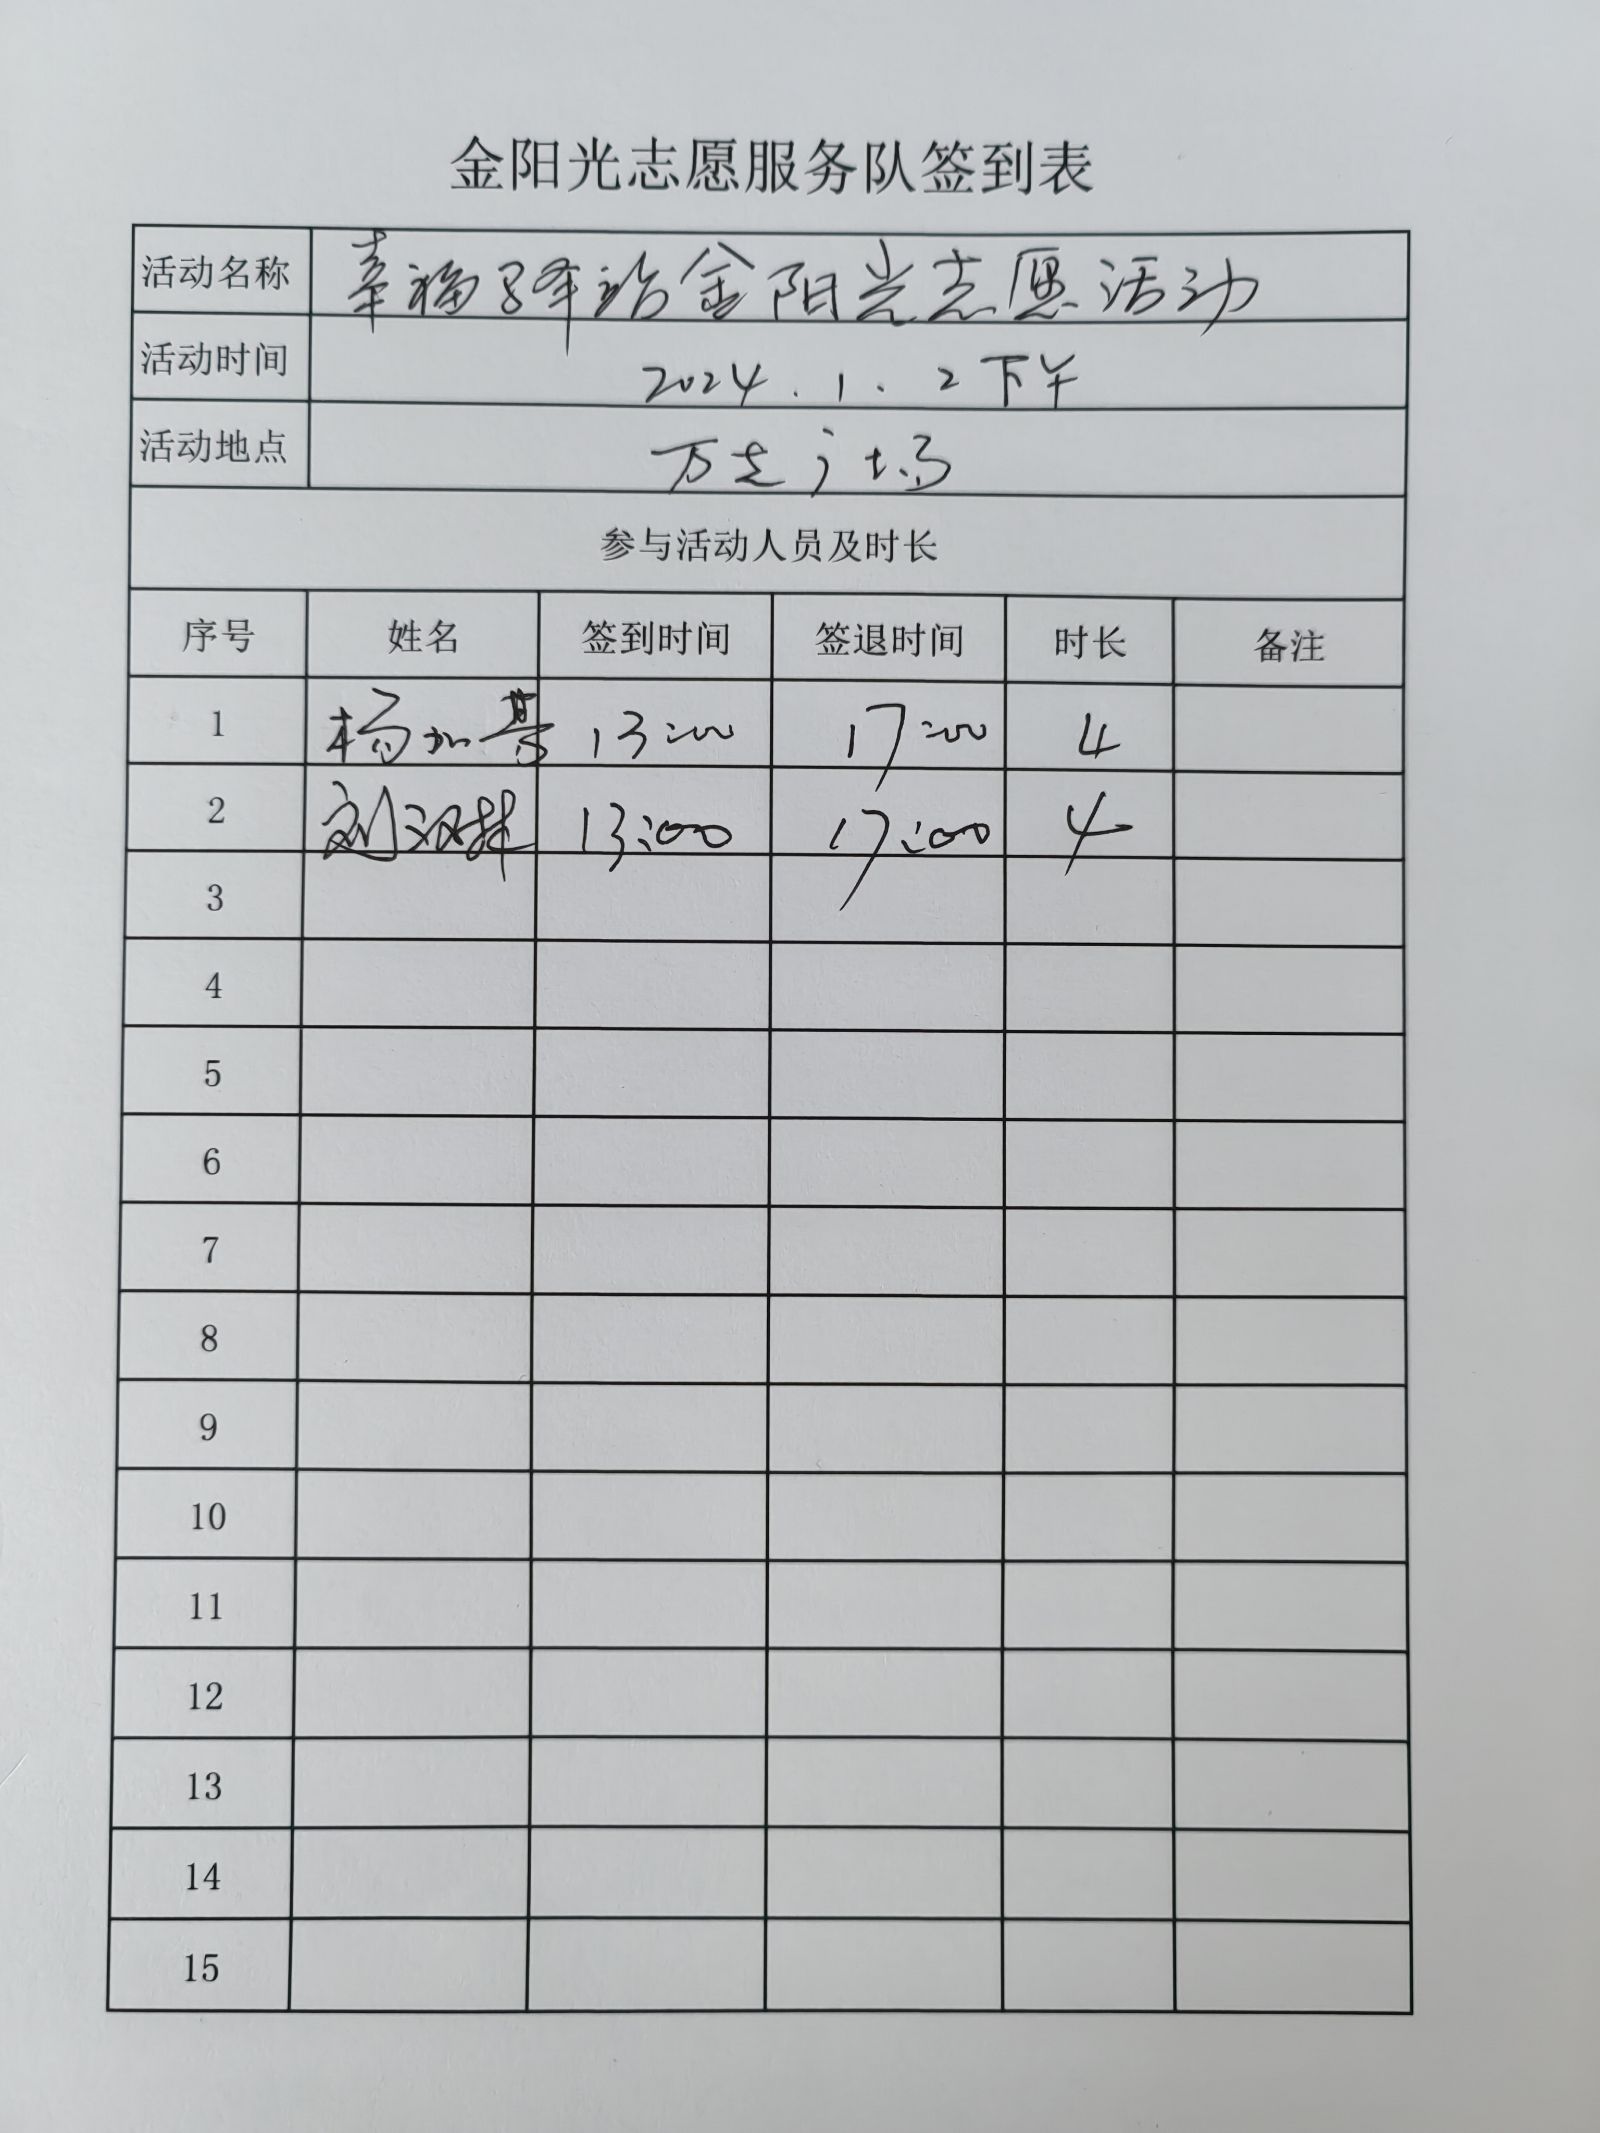 金阳光志愿服务队签到表
活动名称 幸福驿站金阳光志愿活动
活动时间 2024.1.2下午
活动地点 万达广场
参与活动人员及时长
序号 姓名 签到时间 签退时间 时长 备注
1 杨 13:00 17:00 4
2 刘汉林 13:00 17:00 4
3
4
5
6
7
8
9
10
11
12
13
14
15